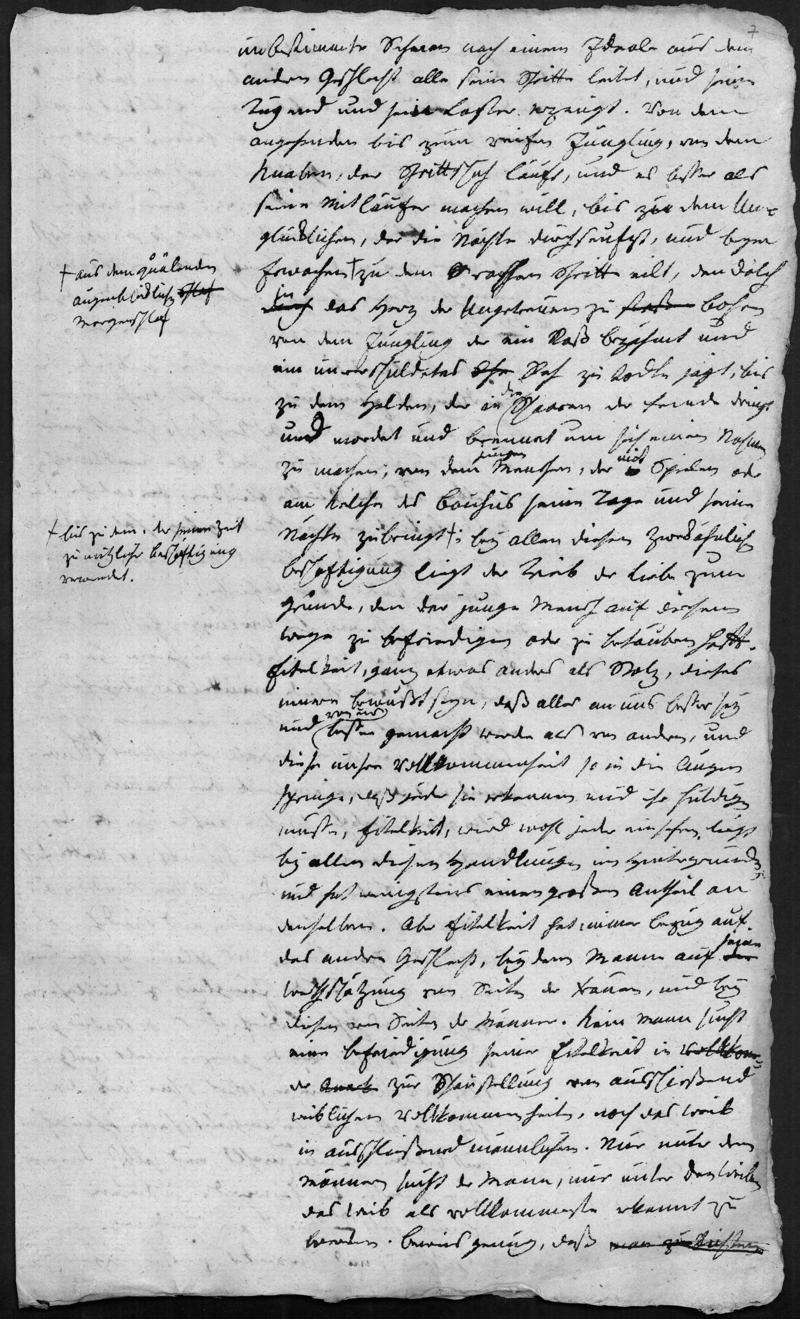 7
unbestimmte Sehnen nach einem Ideale aus dem
andern Geschlecht alle seine Schritte leitet, und seine
Tugend und sein Laster erzeugt. Von dem
angehenden bis zum reifen Jüngling, von dem
Knaben, der Schrittschuh läuft, und es besser als
seine Mitläufer machen will, bis zu dem Un-
glücklichen, der die Nächte durchseufzt, und beym
Erwachen † zu dem raschen Schritt eilt, den Dolch
† aus dem quälenden
augenblicklichen Schlaf
Morgenschlaf
durch in das Herz der Ungetreuen zu bohren
von dem Jüngling der ein Roß bezähmt und
ein unverschuldetes Roß zu Tode jagt, bis
zu dem Helden, der in die Schaaren der Feinde dringt
und mordet und brennt um sich einen Nahmen
zu machen; von dem jungen Menschen, der mit Spielen oder
am Kelche des Bachus seine Tage und seine
Nächte zubringt †; bey allen diesen zweckähnlich
† bis zu dem, der seine Zeit
zu nützlicher Beschäftigung
verwendet.
Beschäftigung liegt der Trieb der Liebe zum
Grunde, den der junge Mensch auf diesem
Wege zu befriedigen oder zu betäuben hofft.
Eitelkeit, ganz etwas anders als Stolz, dieses
innere Bewußtseyn, daß alles an uns besser sey
und von uns besser gemacht werde als von andern, und
diese unsre Vollkommenheit so in die Augen
springe, daß jeder sie erkennen und ihr huldigen
müsse, Eitelkeit, wird wohl jeder einsehen, liegt
bey allen diesen Handlungen im Hintergrunde,
und hat wenigstens einen großen Antheil an
denselben. Aber Eitelkeit hat immer bezug auf
das andere Geschlecht, bey dem Manne auf seine
Werthschätzung von Seiten der Frauen, und bey
diesen von Seiten der Männer. Kein Mann sucht
eine Befriedigung seiner Eitelkeit in Vollkom-
der zur Schaustellung von ausschließend
weiblichen Vollkommenheiten, noch das Weib
in ausschließend männlichen. Nur unter den
Männern sucht der Mann, nur unter den Weibern
das Weib als vollkommenste erkannt zu
werden. Beweis genug, daß man zu